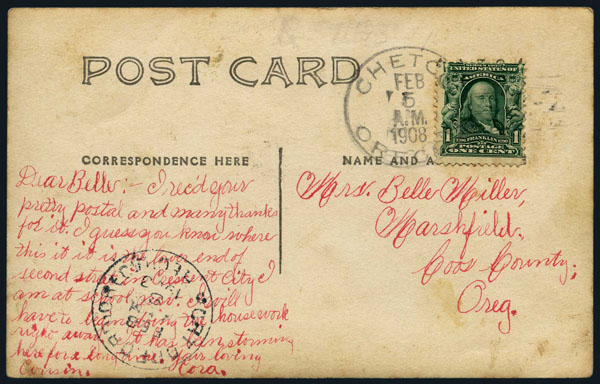 POST CARD
CHETCO
FEB
5
A.M.
1908
OREG.
UNITED STATES OF
AMERICA
1 FRANKLIN 1
POSTAGE
ONE CENT
CORRESPONDENCE HERE
NAME AND A
Dear Belle:- I rec'd your
pretty postal and many thanks
for it. I guess you know where
this it it is the lower end of
second street in Crescent City. I
am at school now. I will
have to housework
right away. It has been storming
here for a long time. Your loving
Cousin. Cora.
Mrs. Belle Miller,
Marshfield.
Coos County,
Oreg.